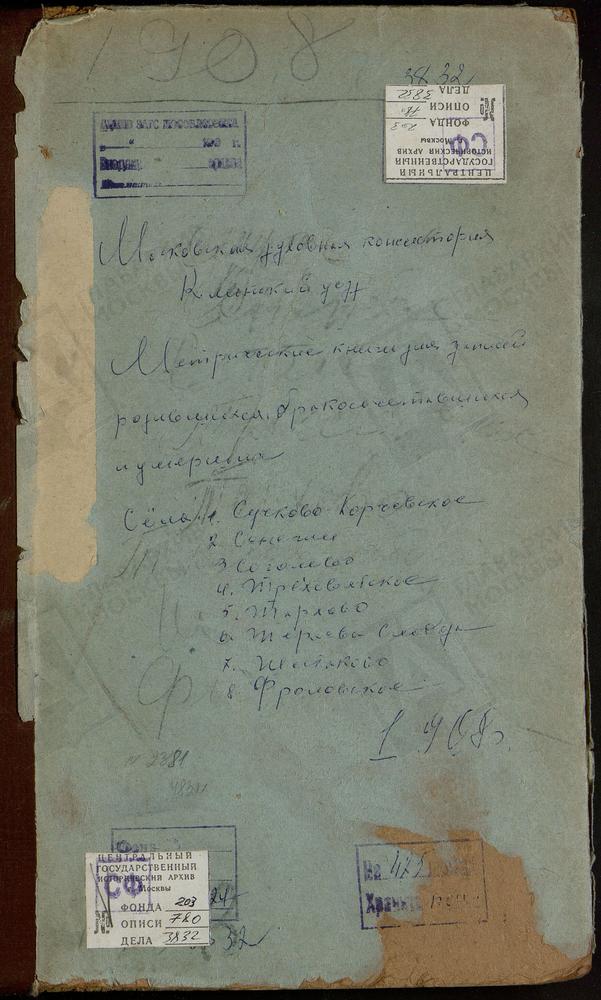 1908
3832
ЦЕНТРАЛЬНЫЙ
ГОСУДАРСТВЕННЫЙ
ИСТОРИЧЕСКИЙ АРХИВ
Москвы
СФ
ФОНДА 203
ОПИСИ 780
ДЕЛА 3832
АРХИВ ЗАГС МОСОБЛИСПОЛКОМА
Московская духовная консистория
Клинский уезд
Метрические книги для записей
родившихся, бракосочетавшихся
и умерших
Сёла: 1. Сучково-Корчевское
2. Сенежи
3 Соголево
4. Трехсвятское
5. Тархово
6. Терпева Слобода
7. Шестаково
8. Фроловское
1908г.
№ 2381
ЦЕНТРАЛЬНЫЙ
ГОСУДАРСТВЕННЫЙ
ИСТОРИЧЕСКИЙ АРХИВ
Москвы
СФ
ФОНДА 203
ОПИСИ 780
ДЕЛА 3832
На 475
Хранить